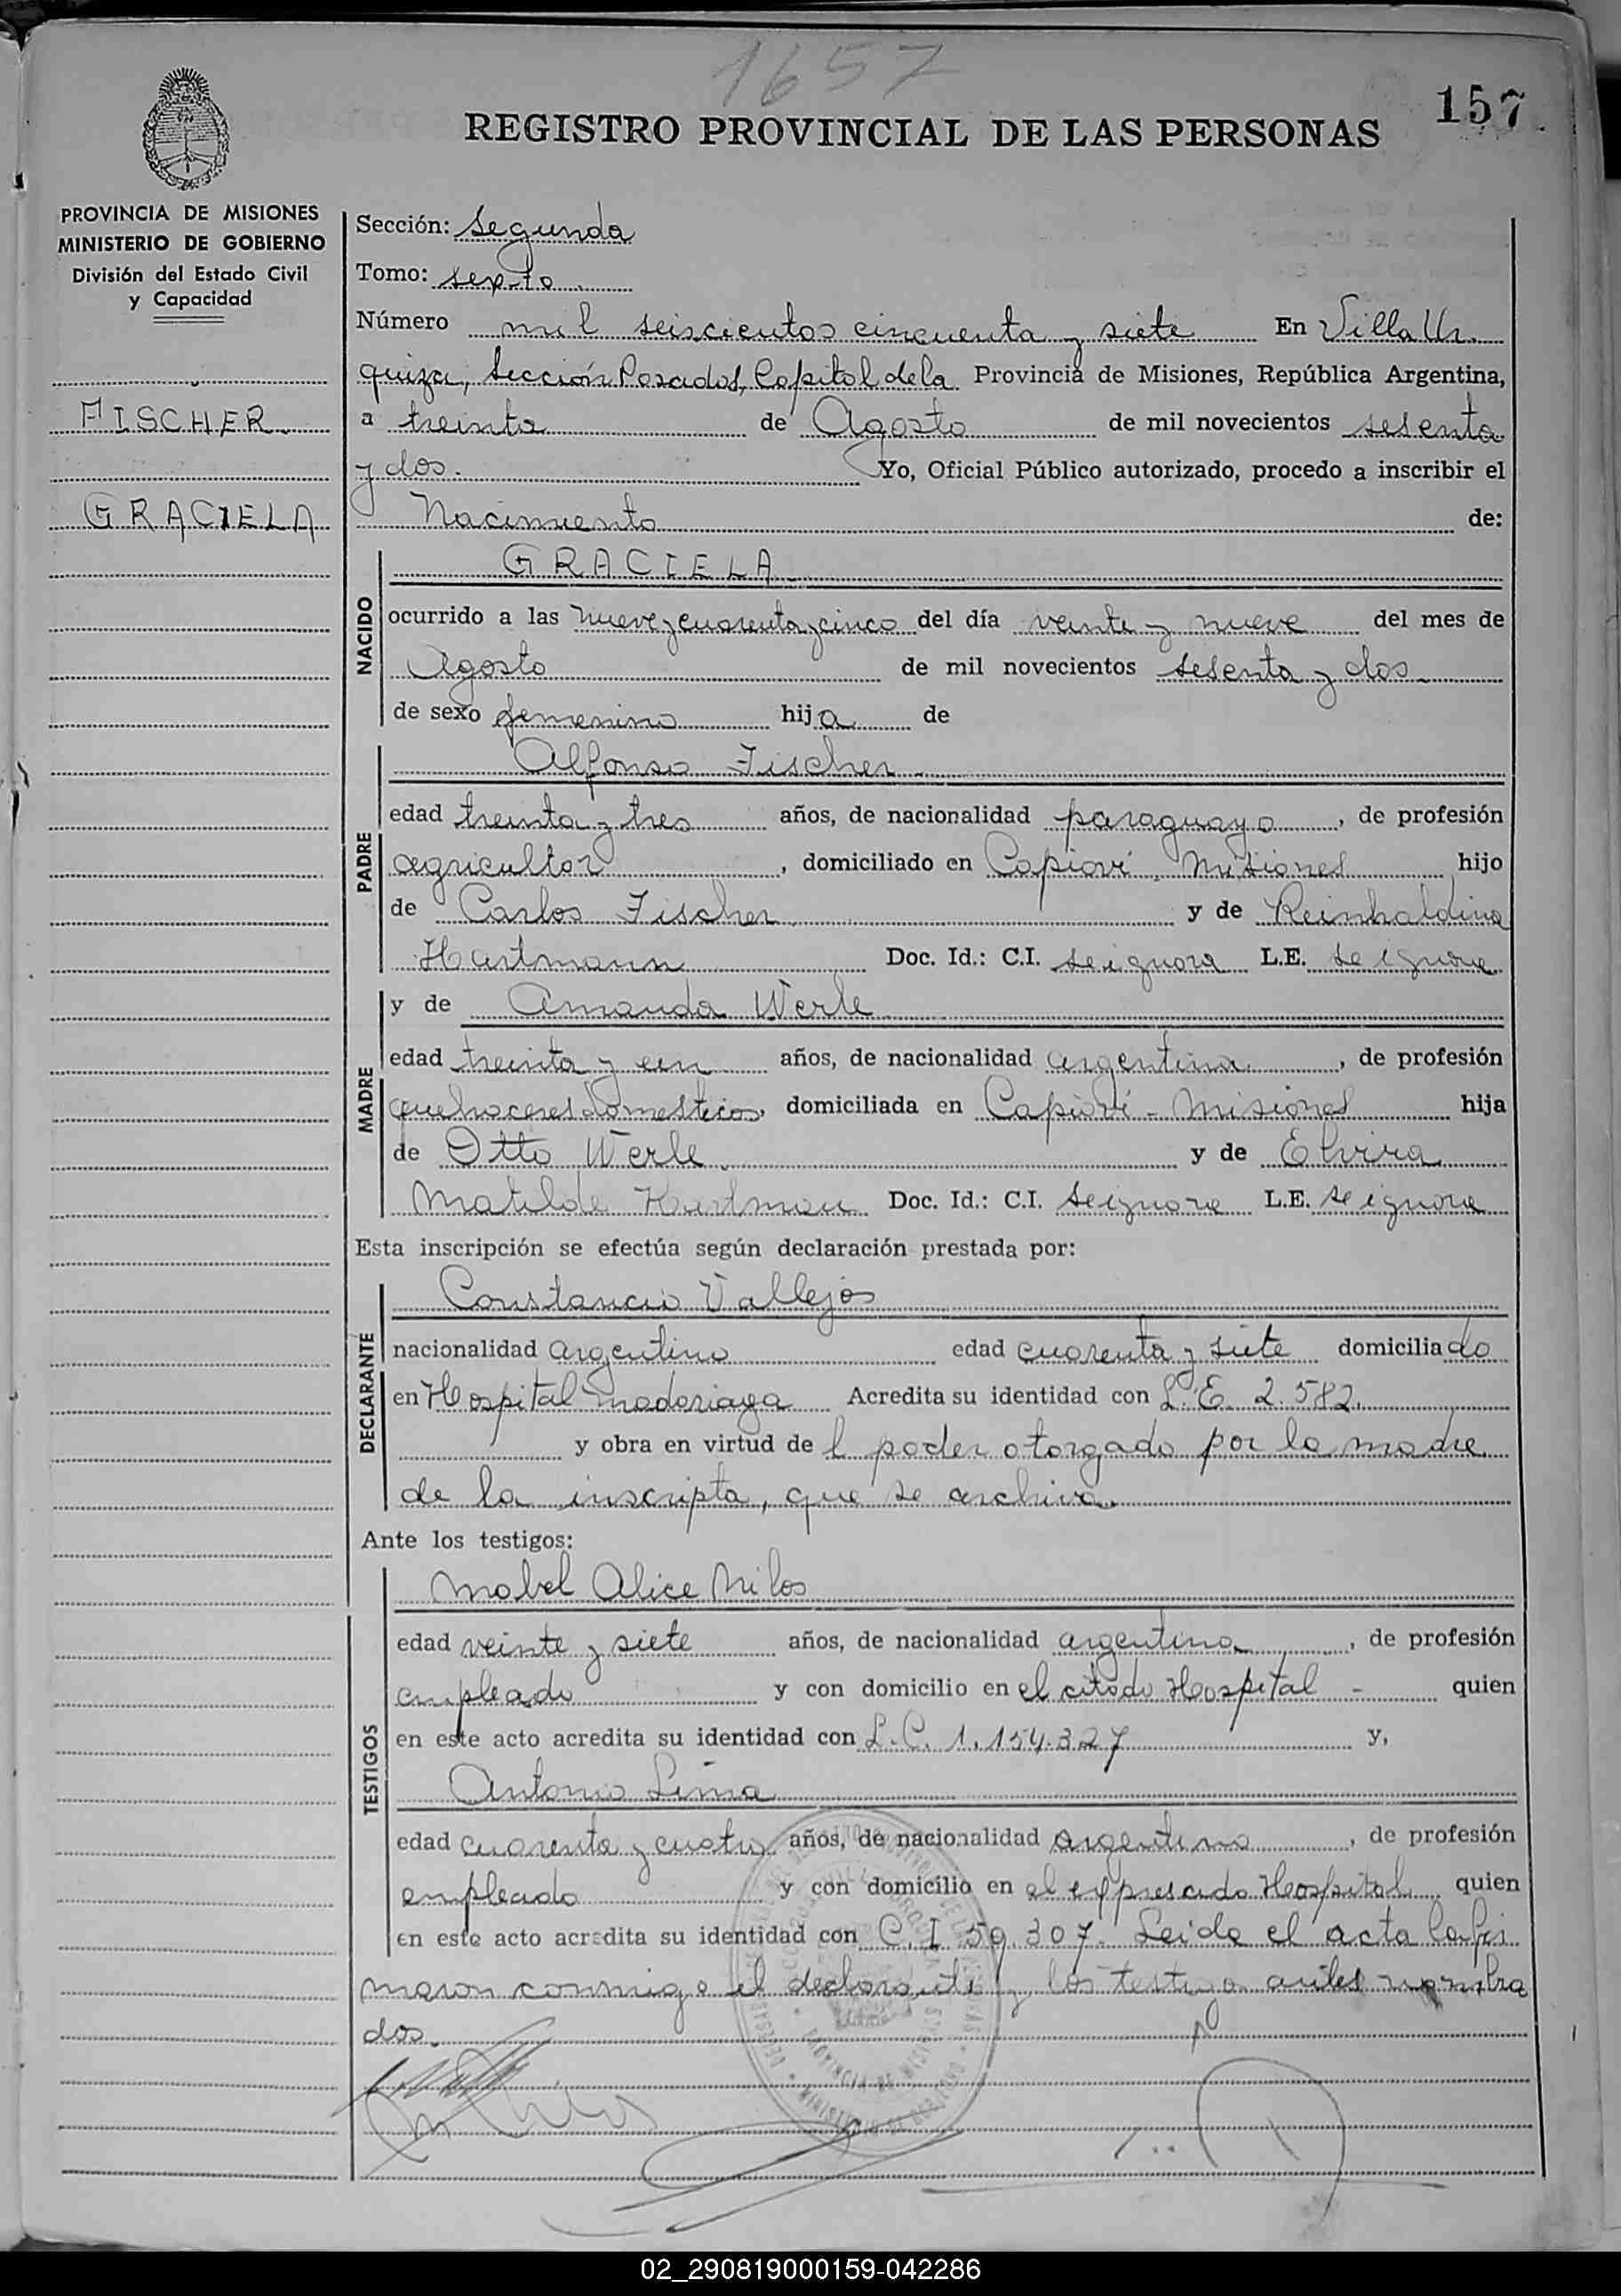 1657
157
REGISTRO PROVINCIAL DE LAS PERSONAS
PROVINCIA DE MISIONES
MINISTERIO DE GOBIERNO
División del Estado Civil
y Capacidad
FISCHER
GRACIELA
Sección: Segunda
Tomo: sexto
Número mil seiscientos cincuenta y siete En Villa Ur
quiza, Sección Posadas, Capital de la Provincia de Misiones, República Argentina,
a treinta de Agosto de mil novecientos sesenta
y dos. Yo, Oficial Público autorizado, procedo a inscribir el
Nacimiento de:
NACIDO
GRACIELA
ocurrido a las nueve y cuarenta y cinco del día veinte y nueve del mes de
Agosto de mil novecientos sesenta y dos
de sexo femenino hija de
PADRE
Alfonso Fischer
edad treinta y tres años, de nacionalidad paraguayo, de profesión
agricultor, domiciliado en Capioví, Misiones hijo
de Carlos Fischer y de Reinhaldina
Hartmann Doc. Id.: C.I. se ignora L.E. se ignora
MADRE
y de Amanda Werle
edad treinta y un años, de nacionalidad argentina, de profesión
quehaceres domesticos, domiciliada en Capioví - Misiones hija
de Otto Werle y de Elvira
Matilde Hartman Doc. Id.: C.I. se ignora L.E. se ignora
Esta inscripción se efectúa según declaración prestada por:
DECLARANTE
Constancio Vallejos
nacionalidad argentino edad cuarenta y siete domiciliado
en Hospital Madariaga Acredita su identidad con L.E. 2.582.
y obra en virtud del poder otorgado por la madre
de la inscripta, que se archiva.
Ante los testigos:
TESTIGOS
Mabel Alice Milos
edad veinte y siete años, de nacionalidad argentina, de profesión
empleada y con domicilio en el citado Hospital - quien
en este acto acredita su identidad con L.C. 1.154.327 y,
Antonio Lima
edad cuarenta y cuatro años, de nacionalidad argentino, de profesión
empleado y con domicilio en el expresado Hospital quien
en este acto acredita su identidad con C.I 59.307. Leida el acta la fir
maron conmigo el declarante y los testigos antes nombra
dos.
02_290819000159-042286